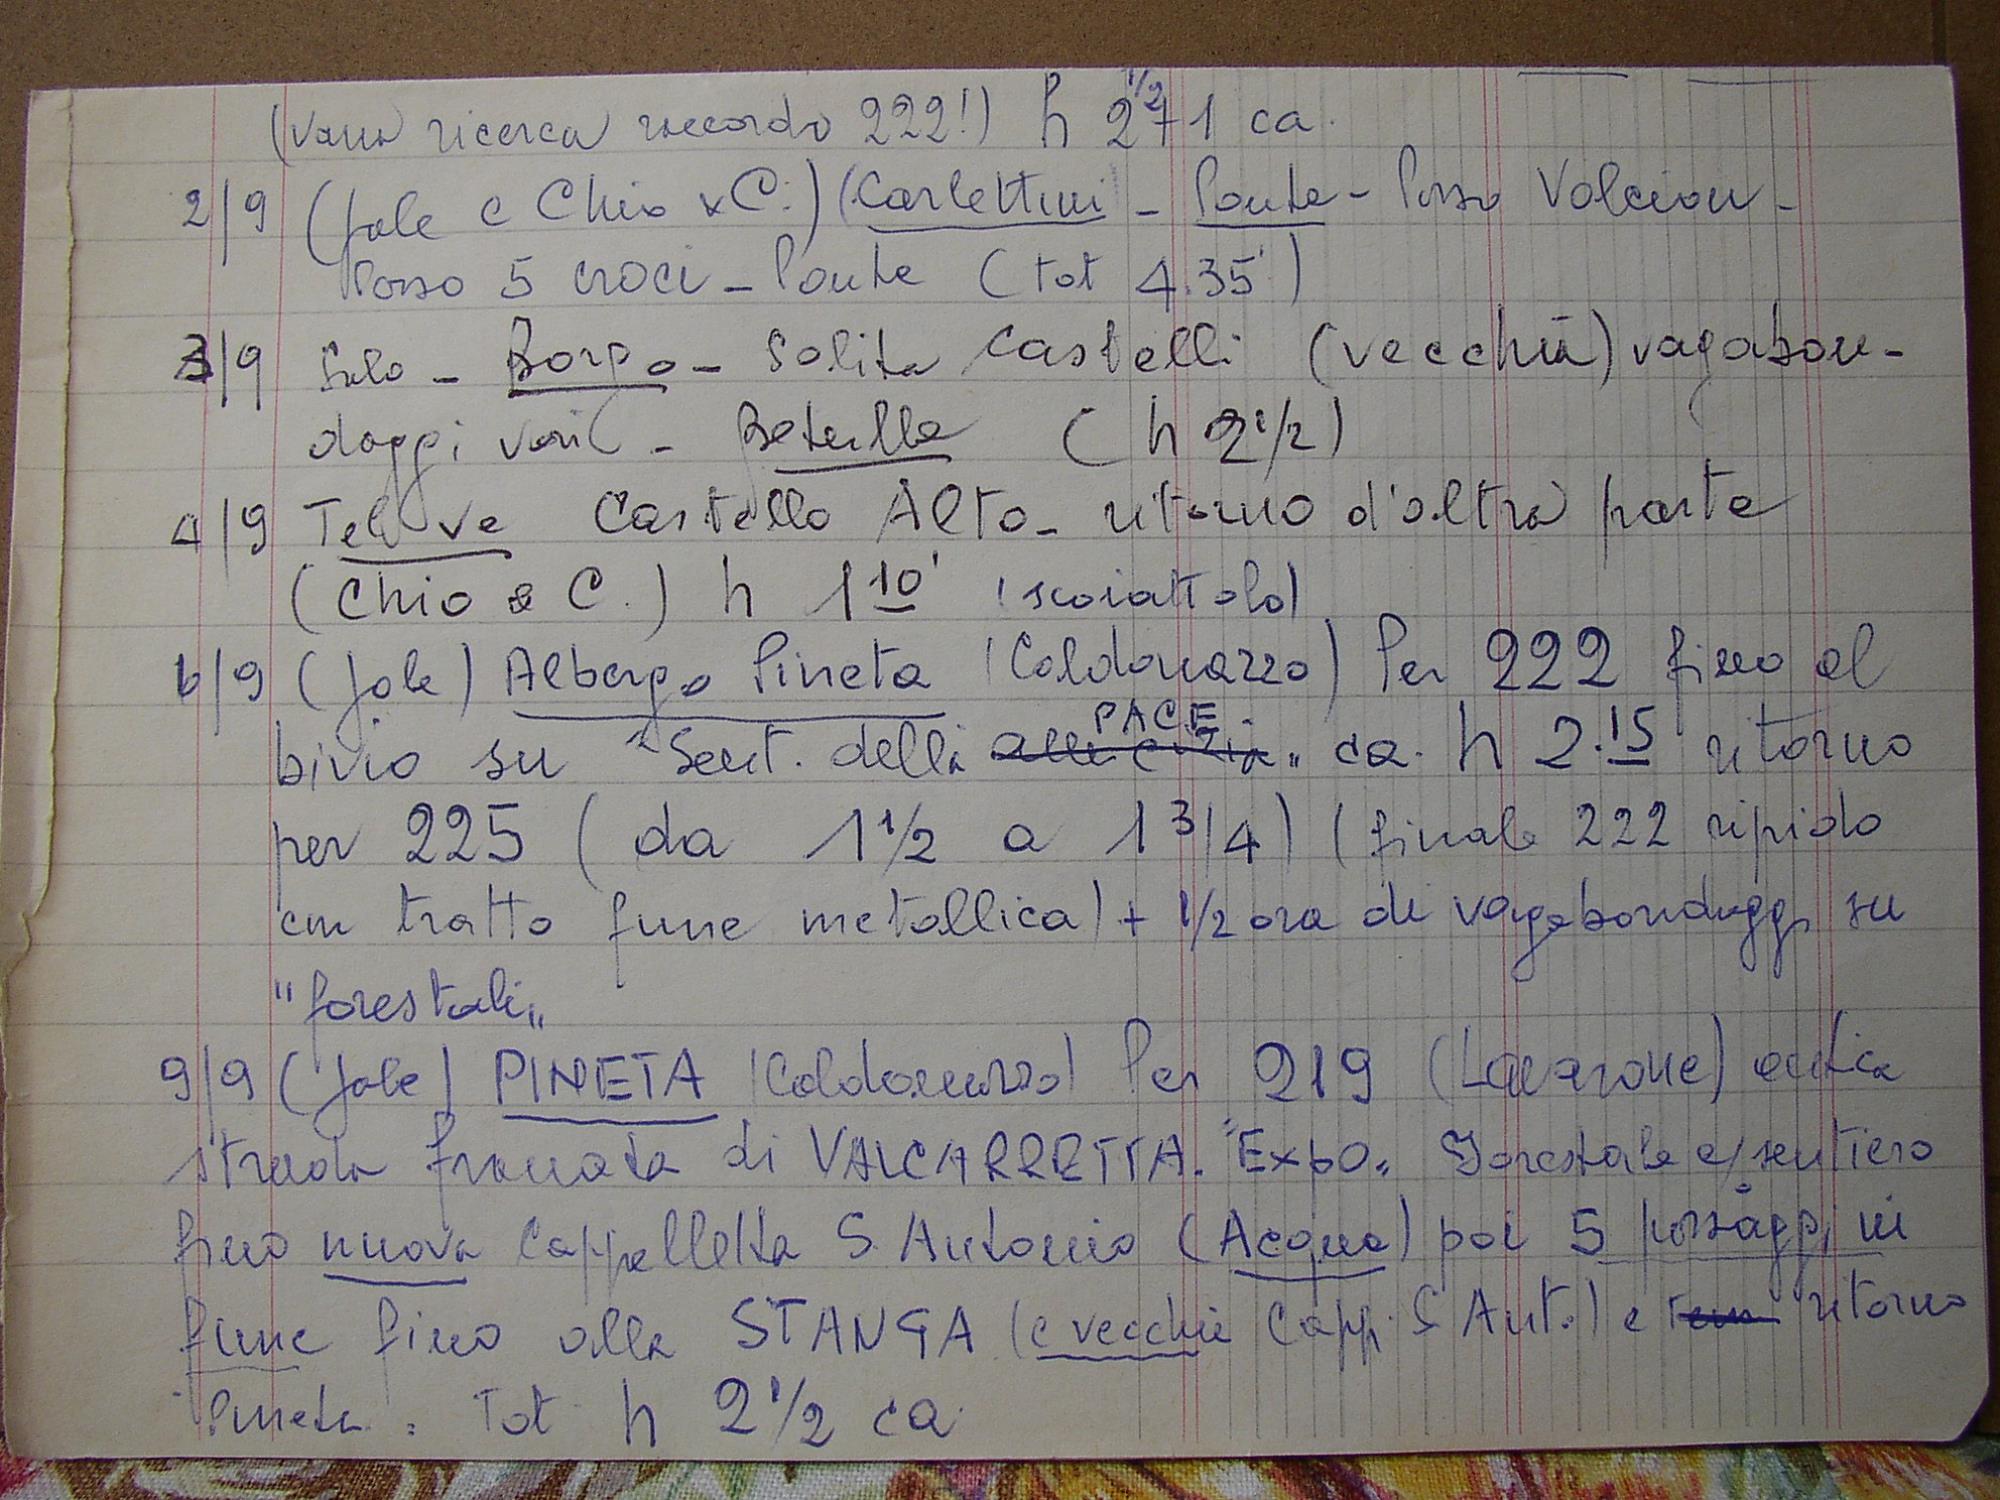 (vana ricerca raccordo 222!) h 2 1/2 + 1 ca.
2/9 (Jole e Chio x C.) (Carlettini - Ponte - Passo Valcion -
Passo 5 croci - Ponte (tot 4.35')
3/9 Solo - Borgo - Solita Castelli (vecchia) vagabon-
daggi vari - (h 2 1/2)
4/9 Telve Castello Alto - ritorno d'altra parte
(Chio e C.) h 1 10' (scoiattolo)
6/9 (Jole) Albergo Pineta (Caldonazzo) Per 222 fino al
bivio su "Sent. della PACE" ca. h 2.15 ritorno
per 225 (da 1 1/2 a 1 3/4) (finale 222 ripido
con tratto fune metallica) + 1/2 ora di vagabondaggi su
"forestali"
9/9 (Jole) PINETA (Caldonazzo) Per 219 (Lavarone) antica
strada franata di VALCARRETTA. "Expo" Forestale e/sentiero
fino nuova Cappelletta S. Antonio (Acqua) poi 5 passaggi in
fune fino alla STANGA (e vecchia Capp. S Ant.) e ritorno
Pineta. Tot h 2 1/2 ca